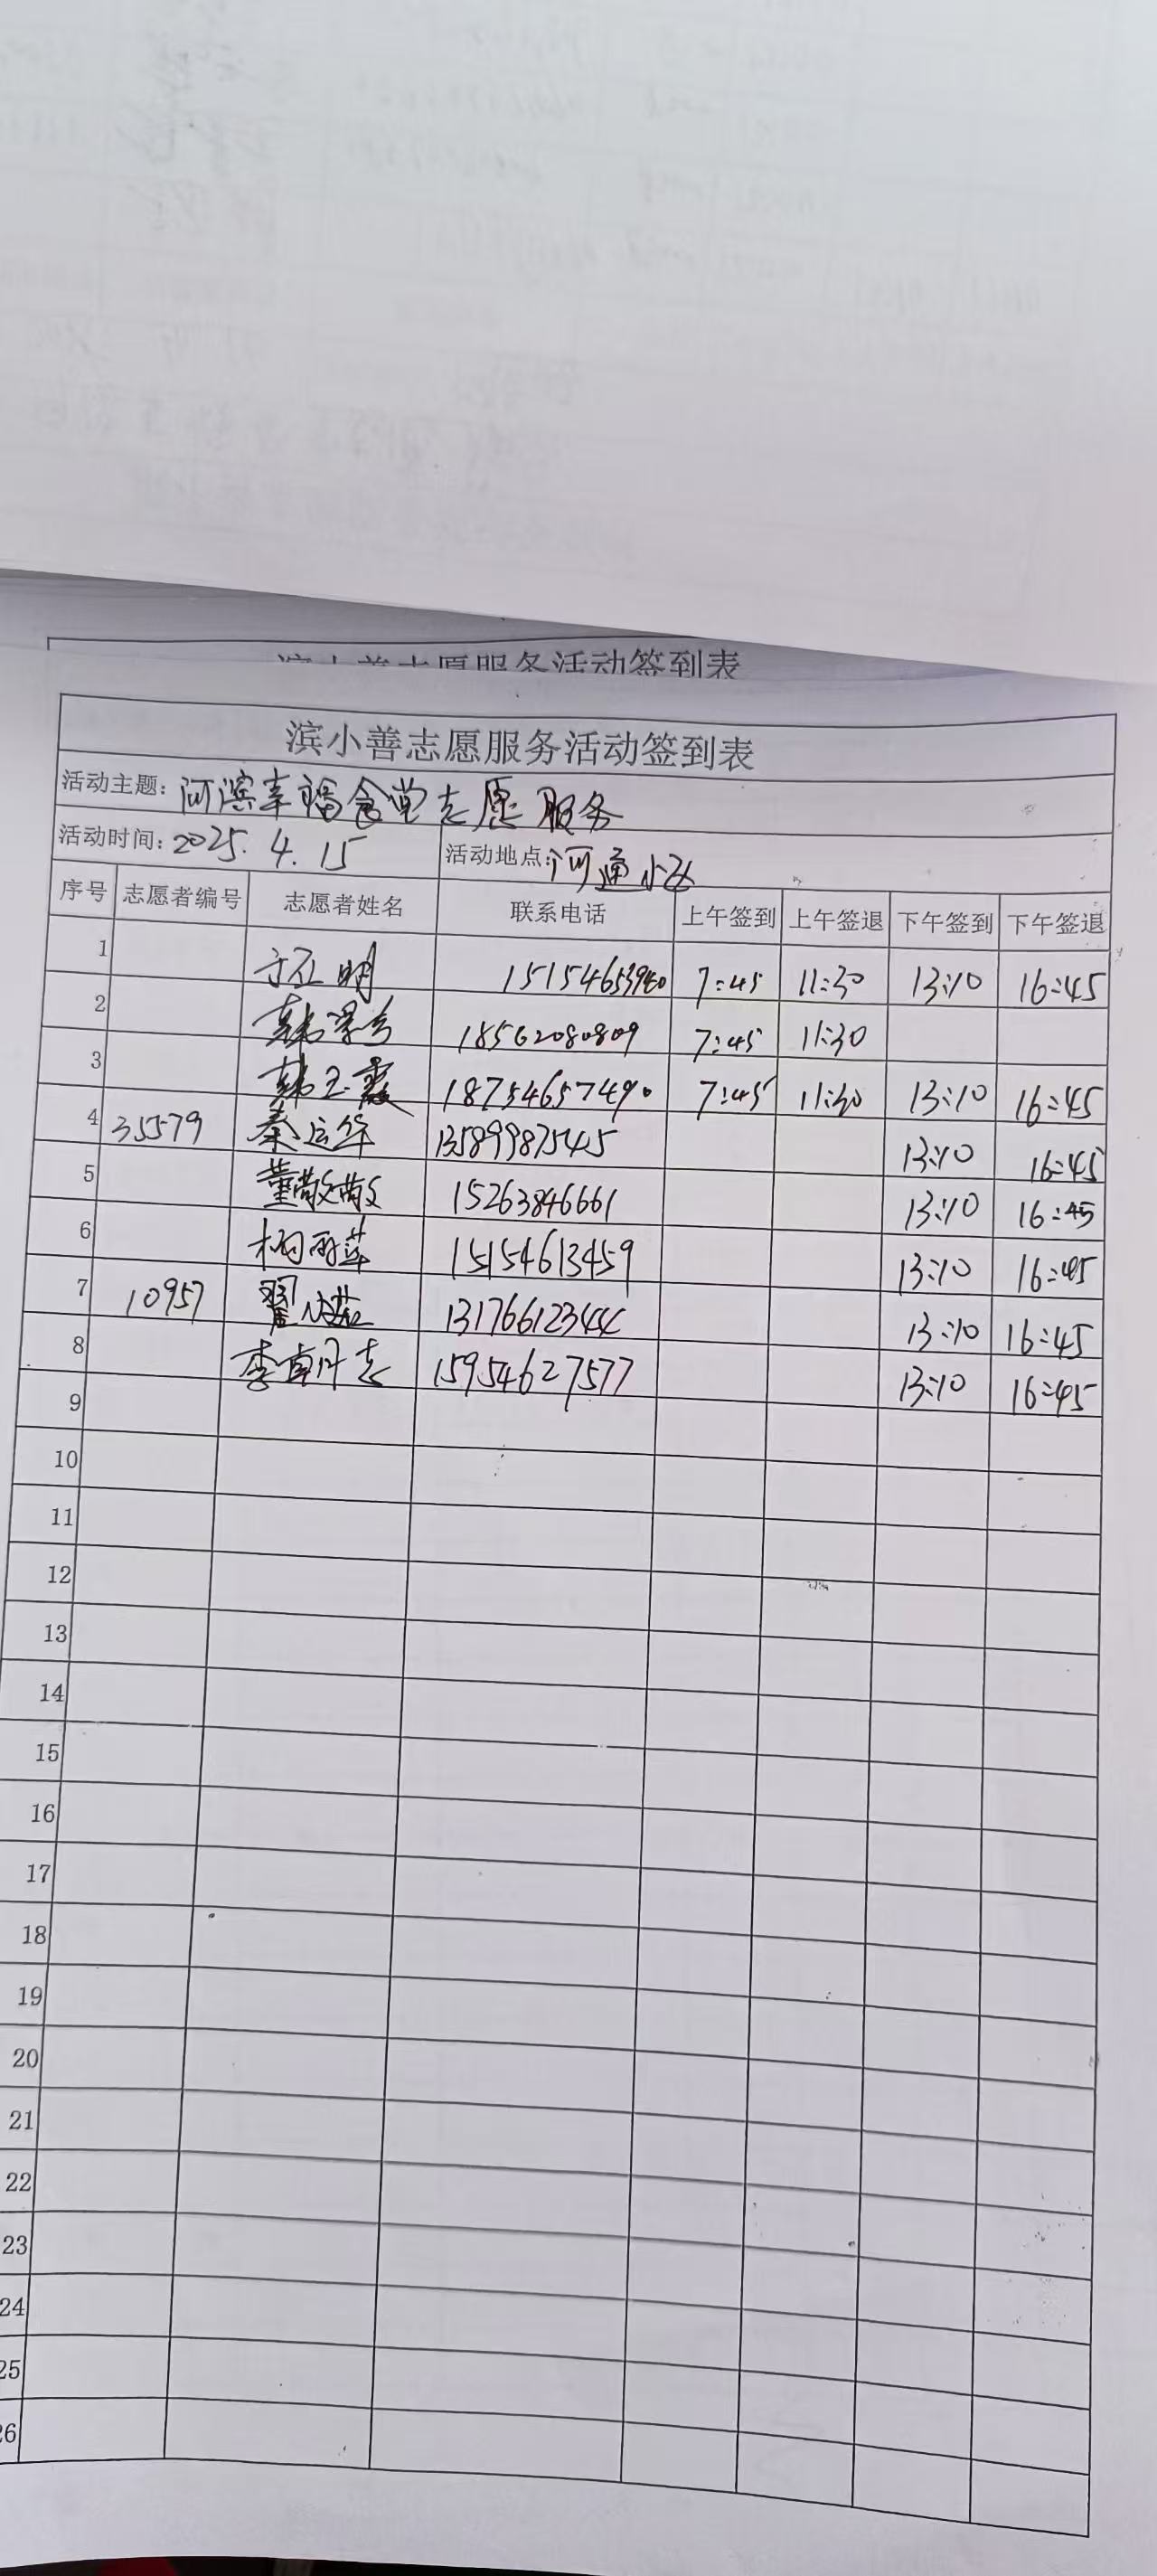 滨小善志愿服务活动签到表
滨小善志愿服务活动签到表
活动主题: 河滨幸福食堂志愿服务
活动时间: 2025.4.15 活动地点: 河通小区
序号 志愿者编号 志愿者姓名 联系电话 上午签到 上午签退 下午签到 下午签退
1 于丘明 15154653940 7:45 11:30 13:10 16:45
2 韩 18562080809 7:45 11:30
3 韩玉霞 18754657490 7:45 11:30 13:10 16:45
4 35579 秦运华 13589987545 13:10 16:45
5 董敬敬 15263846661 13:10 16:45
6 杨丽萍 15154613459 13:10 16:45
7 10957 翟 13176612344 13:10 16:45
8 李 15954627577 13:10 16:45
9
10
11
12
13
14
15
16
17
18
19
20
21
22
23
24
25
26